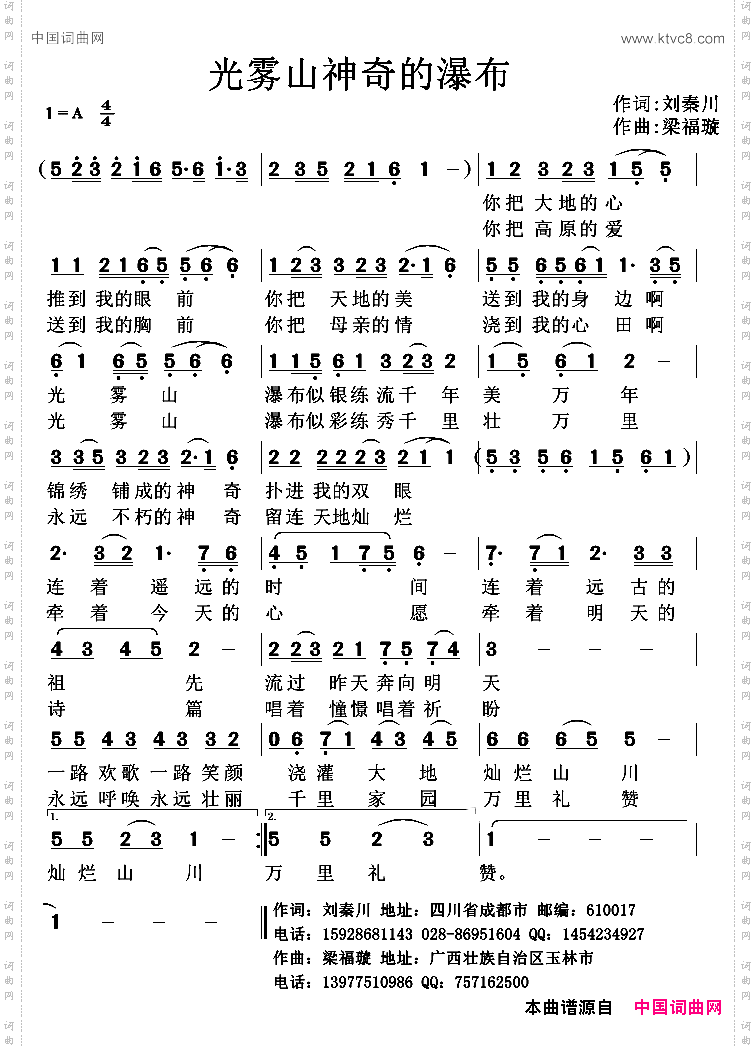 中国词曲网 www.ktvc8.com
光雾山神奇的瀑布
1=A 4/4
作词:刘秦川
作曲:梁福璇
(5 2 3 2 1 6 5·6 1·3 | 2 3 5 2 1 6 1 -) | 1 2 3 2 3 1 5 5 |
你把 大地的心
你把 高原的爱
1 1 2 1 6 5 5 6 6 | 1 2 3 3 2 3 2·1 6 | 5 5 6 5 6 1 1· 3 5 |
推到 我的眼 前 你把 天地的美 送到 我的身 边啊
送到 我的胸 前 你把 母亲的情 浇到 我的心 田啊
6 1 6 5 5 6 6 | 1 1 5 6 1 3 2 3 2 | 1 5 6 1 2 - |
光 雾 山 瀑布似银练 流千 年 美 万 年
光 雾 山 瀑布似彩练 秀千 里 壮 万 里
3 3 5 3 2 3 2·1 6 | 2 2 2 2 2 3 2 1 1 | (5 3 5 6 1 5 6 1) |
锦绣 铺成的神 奇 扑进 我的双 眼
永远 不朽的神 奇 留连 天地灿 烂
2· 3 2 1· 7 6 | 4 5 1 7 5 6 - | 7· 7 1 2· 3 3 |
连 着 遥 远的 时 间 连 着 远 古的
牵 着 今 天的 心 愿 牵 着 明 天的
4 3 4 5 2 - | 2 2 3 2 1 7 5 7 4 | 3 - - - |
祖 先 流过 昨天 奔向 明 天
诗 篇 唱着 憧憬 唱着 祈 盼
5 5 4 3 4 3 3 2 | 0 6 7 1 4 3 4 5 | 6 6 6 6 5 5 - |
一路 欢歌 一路 笑颜 浇灌 大 地 灿烂 山 川
永远 呼唤 永远 壮丽 千里 家 园 万里 礼 赞
1. 5 5 2 3 1 - :| 2. 5 5 2 3 | 1 - - - |
灿 烂 山 川 万 里 礼 赞。
1 - - - ‖
作词：刘秦川 地址：四川省成都市 邮编：610017
电话：15928681143 028-86951604 QQ：1454234927
作曲：梁福璇 地址：广西壮族自治区玉林市
电话：13977510986 QQ：757162500
本曲谱源自 中国词曲网